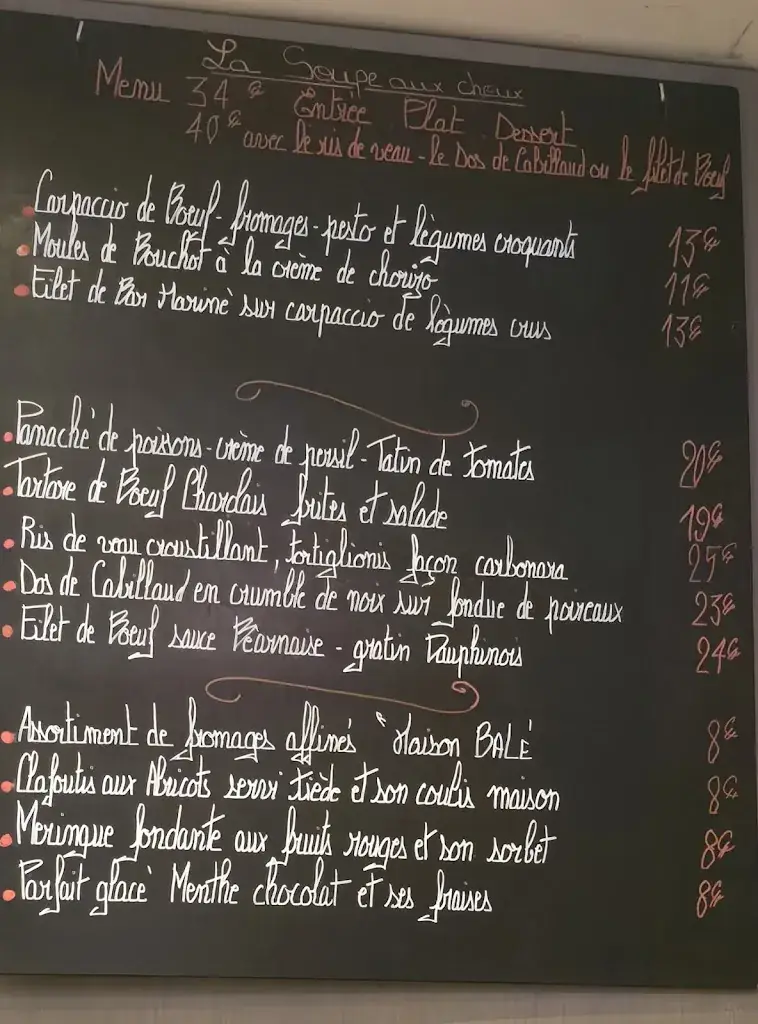 La Soupe aux choux
Menu 34€ Entrée Plat Dessert
40€ avec le ris de veau - le Dos de Cabillaud ou le filet de Boeuf
Carpaccio de Boeuf - fromages - pesto et légumes croquants 13€
Moules de Bouchot à la crème de chorizo 11€
Filet de Bar Mariné sur carpaccio de légumes crus 13€
Panaché de poissons - crème de persil - Tatin de tomates 20€
Tartare de Boeuf Charolais frites et salade 19€
Ris de veau croustillant, tortiglionis façon carbonara 25€
Dos de Cabillaud en crumble de noix sur fondue de poireaux 23€
Filet de Boeuf sauce Béarnaise - gratin Dauphinois 24€
Assortiment de fromages affinés "Maison BALÉ 8€
Clafoutis aux Abricots servi tiède et son coulis maison 8€
Meringue fondante aux fruits rouges et son sorbet 8€
Parfait glacé Menthe chocolat et ses fraises 8€